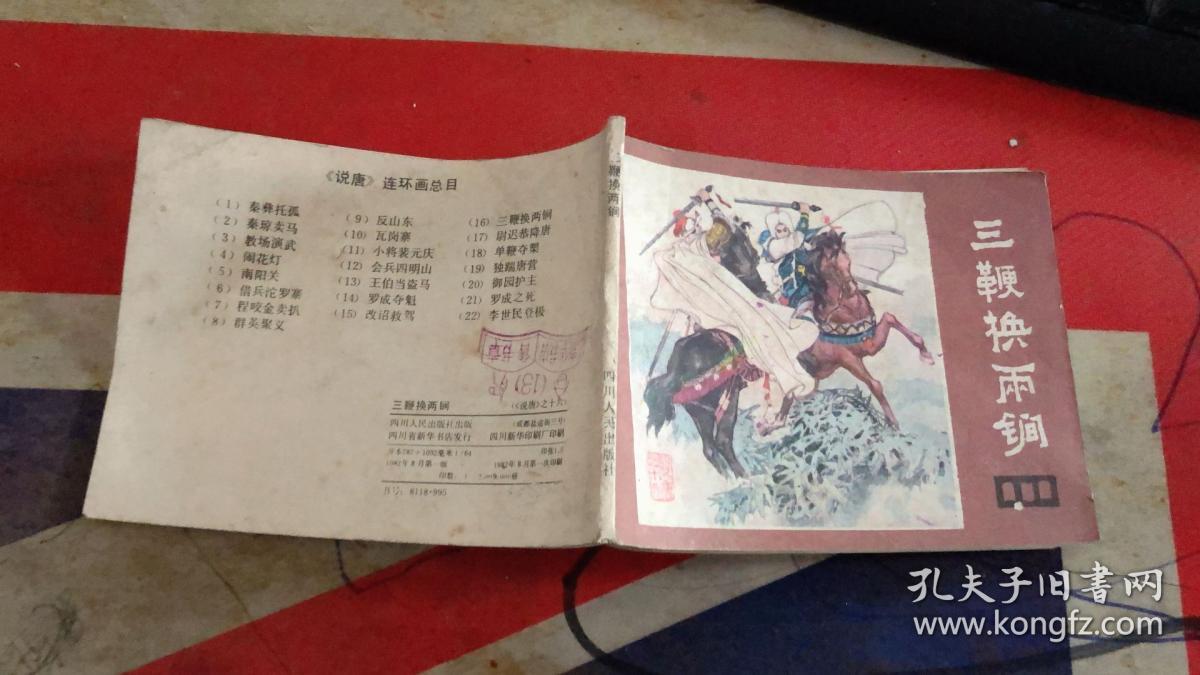 《说唐》连环画总目
（1）秦彝托孤
（2）秦琼卖马
（3）教场演武
（4）闹花灯
（5）南阳关
（6）借兵沱罗寨
（7）程咬金卖扒
（8）群英聚义
（9）反山东
（10）瓦岗寨
（11）小将裴元庆
（12）会兵四明山
（13）王伯当盗马
（14）罗成夺魁
（15）改诏救驾
（16）三鞭换两锏
（17）尉迟恭降唐
（18）单鞭夺槊
（19）独踹唐营
（20）御园护主
（21）罗成之死
（22）李世民登极
三鞭换两锏
（《说唐》之十六
四川人民出版社出版
（成都盐道街三号）
四川省新华书店发行
四川新华印刷厂印刷
开本787×1092毫米1/64
1982年8月第一版
1982年8月第一次印刷
书号：8118·995
三鞭换两锏
四川人民出版社
三鞭换两锏
孔夫子旧书网
www.kongfz.com